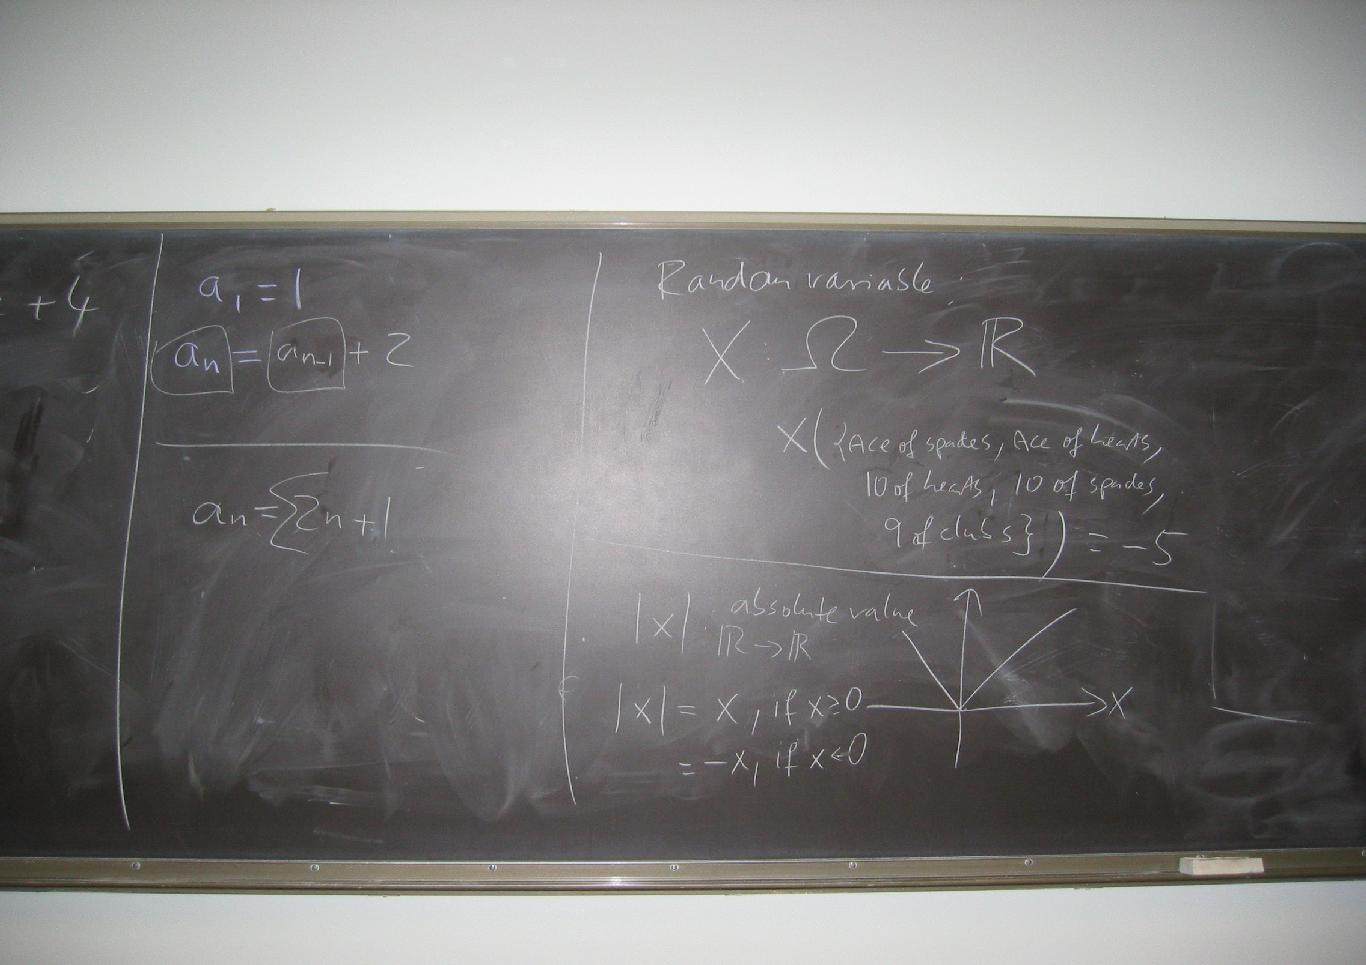 + 4
a₁ = 1
aₙ = aₙ₋₁ + 2
aₙ = {2n + 1
Random variable:
X : Ω → ℝ
X({Ace of spades, Ace of hearts,
10 of hearts, 10 of spades,
9 of clubs}) = -5
|x| : absolute value
ℝ → ℝ
|x| = x, if x ≥ 0
= -x, if x < 0
x